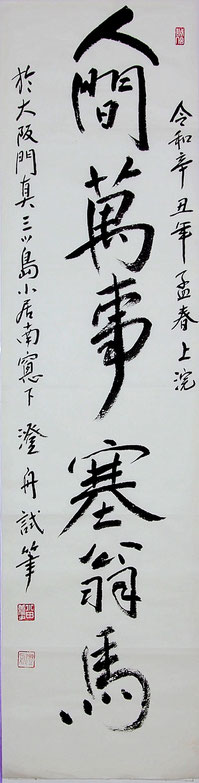 令和辛丑年孟春上浣
人間萬事塞翁馬
於大阪門真三ッ島小居南窓下 澄舟試筆